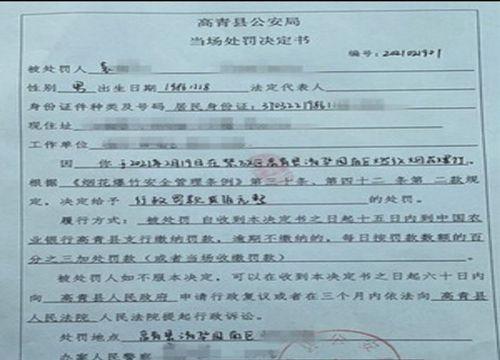 高青县公安局
当场处罚决定书
编号:202102901
被处罚人
性别 男 出生日期 1986.11.18 法定代表人
身份证件种类及号码 居民身份证:3703221986
现住址
工作单位
因 你于2021年2月19日在禁放区高青县 园南区燃放烟花爆竹,
根据《烟花爆竹安全管理条例》第三十条、第四十二条第二款
规定,决定给予 行政罚款 元整 的处罚。
履行方式:被处罚 自收到本决定书之日起十五日内到中国农
业银行高青县支行缴纳罚款,逾期不缴纳的,每日按罚款数额的百
分之三加处罚款(或者当场收缴罚款)
被处罚人如不服本决定,可以在收到本决定书之日起六十日内
向 高青县人民政府 申请行政复议或者在三个月内依法向 高青县
人民法院 人民法院提起行政诉讼。
处罚地点 高青县 园南区
办案人民警察